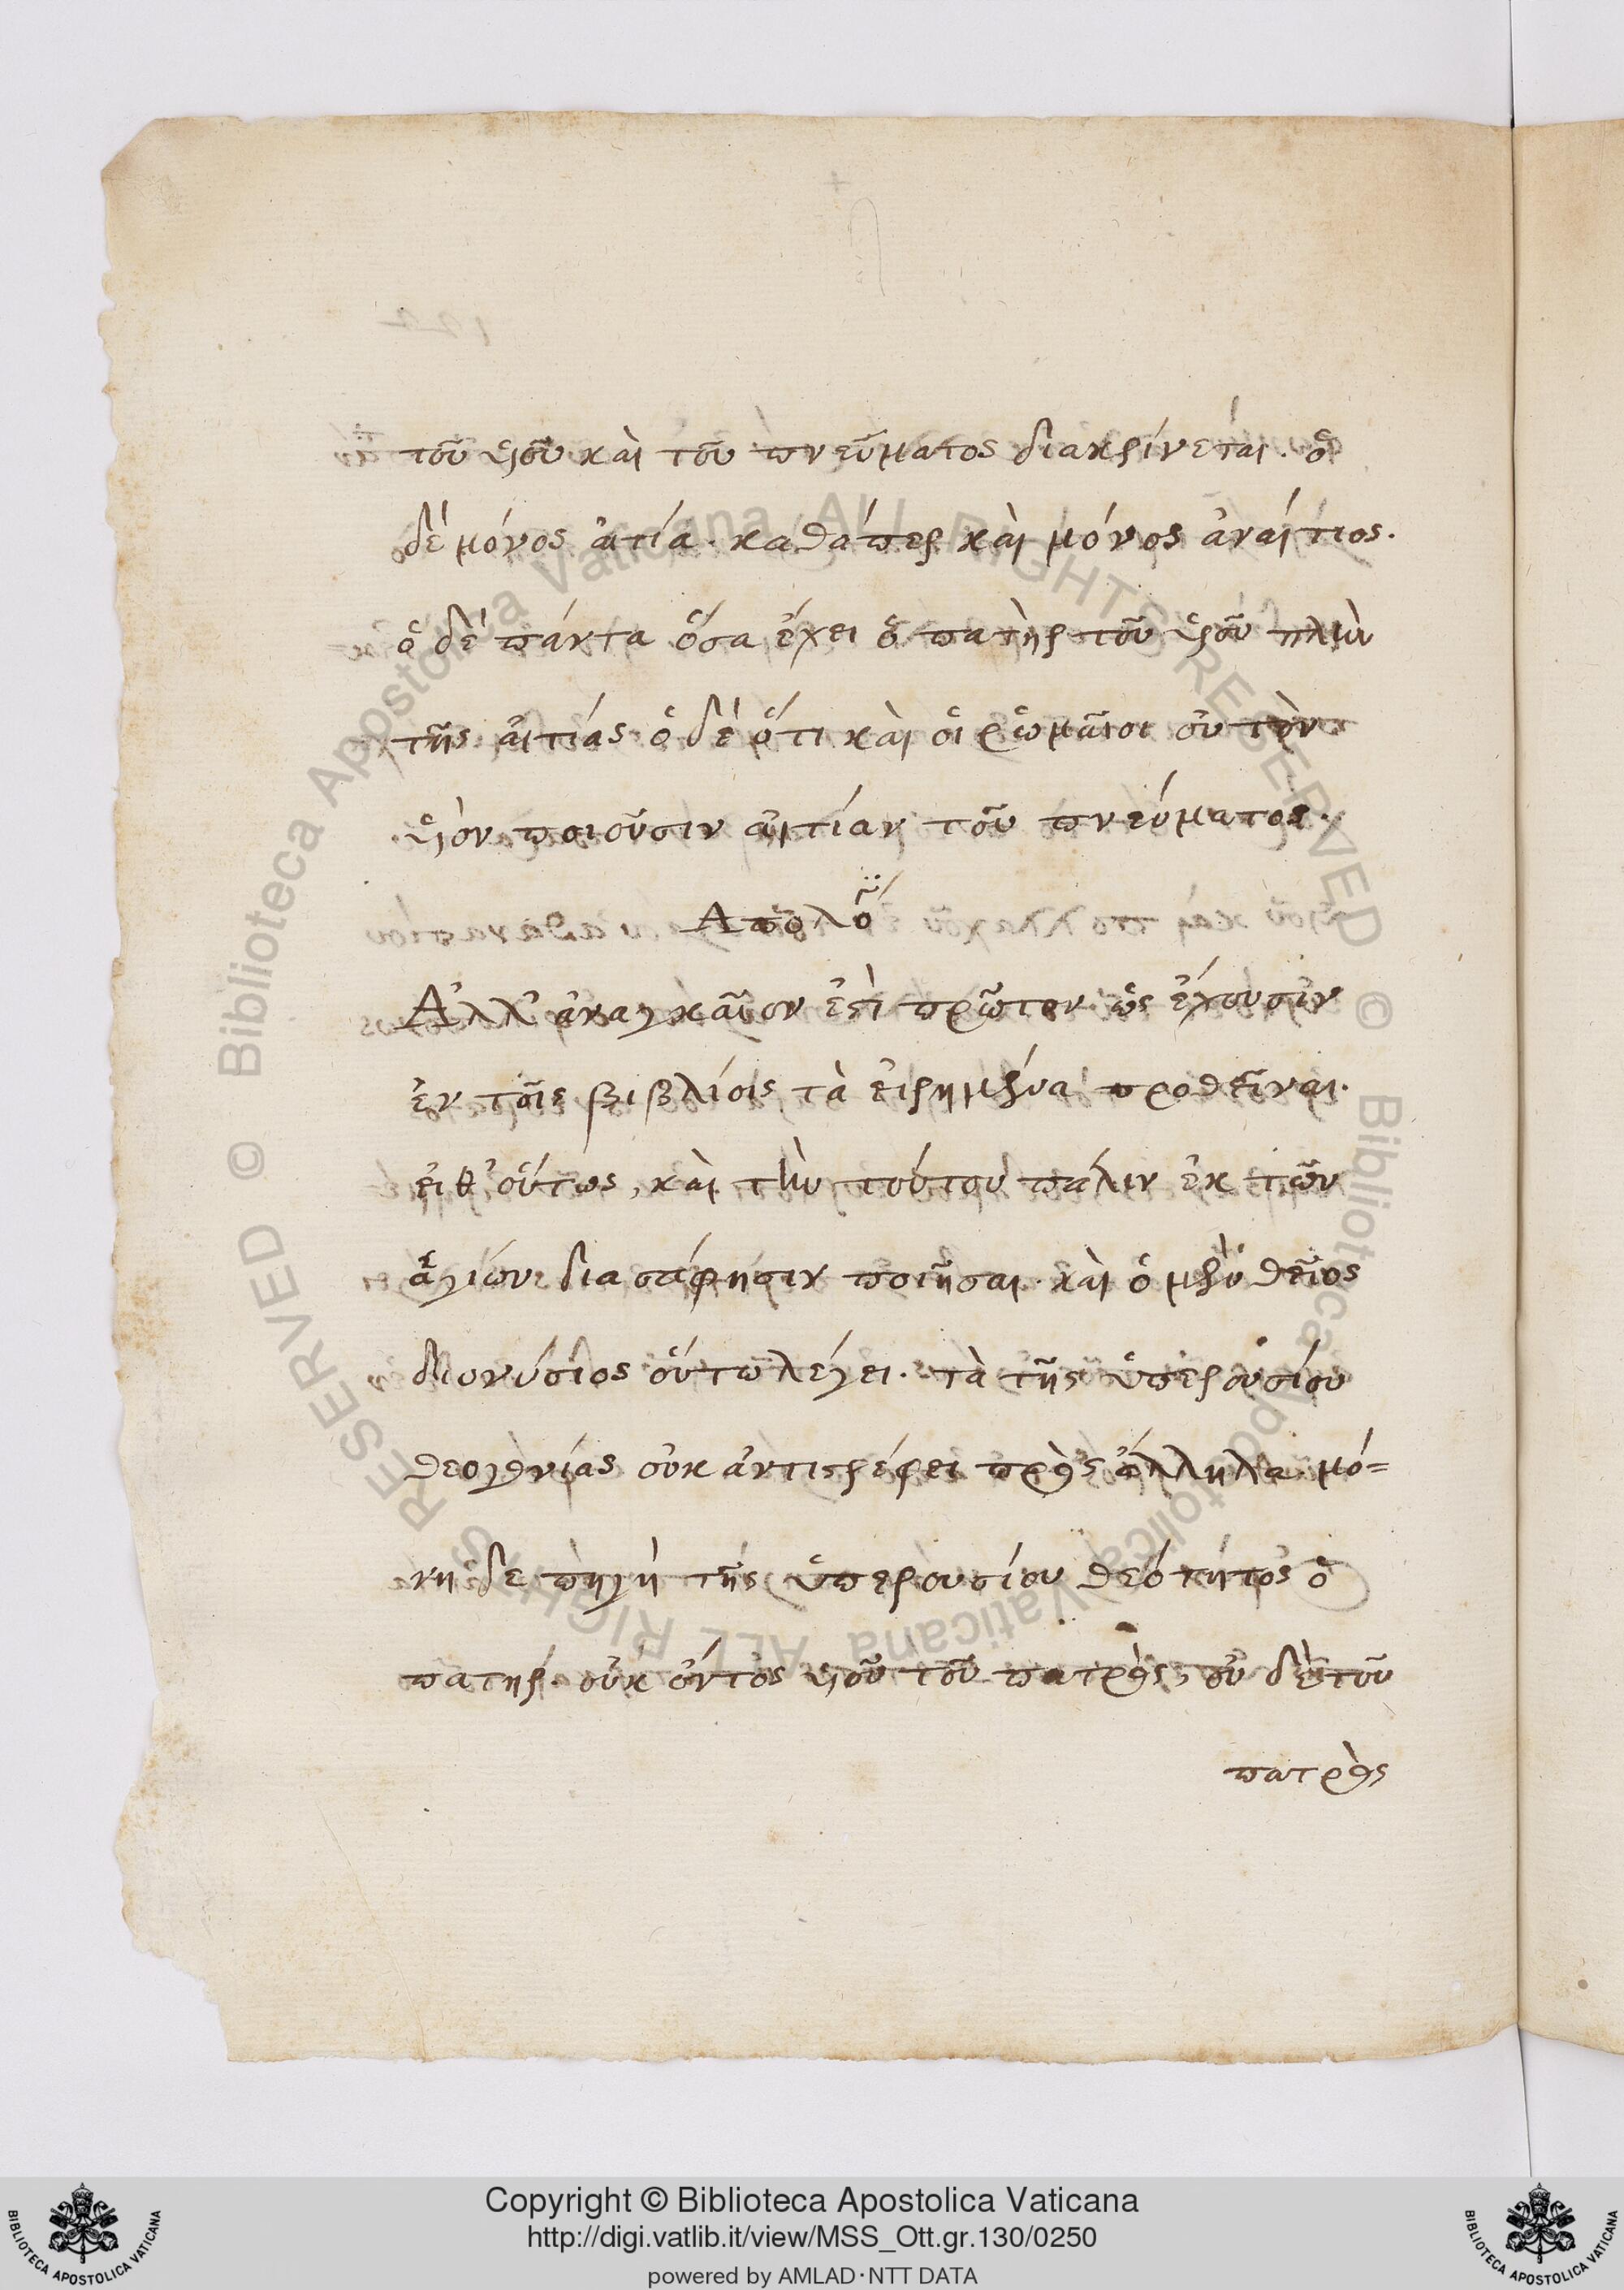 τοῦ ὑιοῦ καὶ τοῦ πνεύματος διακρίνεται. ὁ
δὲ μόνος αἰτία. καθάπερ καὶ μόνος ἀναίτιος.
ὁ δὲ πάντα ὅσα ἔχει ὁ πατὴρ τοῦ ὑιοῦ πλὴν
τῆς αἰτίας. ὁ δὲ ὅτι καὶ οἱ ῥωμαῖοι οὐ τὸν
ὑιὸν ποιοῦσιν αἰτίαν τοῦ πνεύματος.
Ἀλλ' ἀναγκαῖον ἐστὶ πρῶτον ὡς ἔχουσιν
ἐν τοῖς βιβλίοις τὰ εἰρημένα προθεῖναι.
εἶθ' οὕτως, καὶ τὴν τούτου πάλιν ἐκ τῶν
ἁγίων διασάφησιν ποιῆσαι. καὶ ὁ μὲν θεῖος
διονύσιος οὕτω λέγει. τὰ τῆς ὑπερουσίου
θεογονίας οὐκ ἀντιστρέφει πρὸς ἄλληλα. μό=
νη δὲ πηγὴ τῆς ὑπερουσίου θεότητος ὁ
πατήρ. οὐκ ὄντος ὑιοῦ τοῦ πατρὸς, οὐ δὲ τοῦ
πατρὸς
Copyright © Biblioteca Apostolica Vaticana
http://digi.vatlib.it/view/MSS_Ott.gr.130/0250
powered by AMLAD·NTT DATA
BIBLIOTECA APOSTOLICA VATICANA
BIBLIOTECA APOSTOLICA VATICANA
© Biblioteca Apostolica Vaticana ALL RIGHTS RESERVED
© Biblioteca Apostolica Vaticana ALL RIGHTS RESERVED